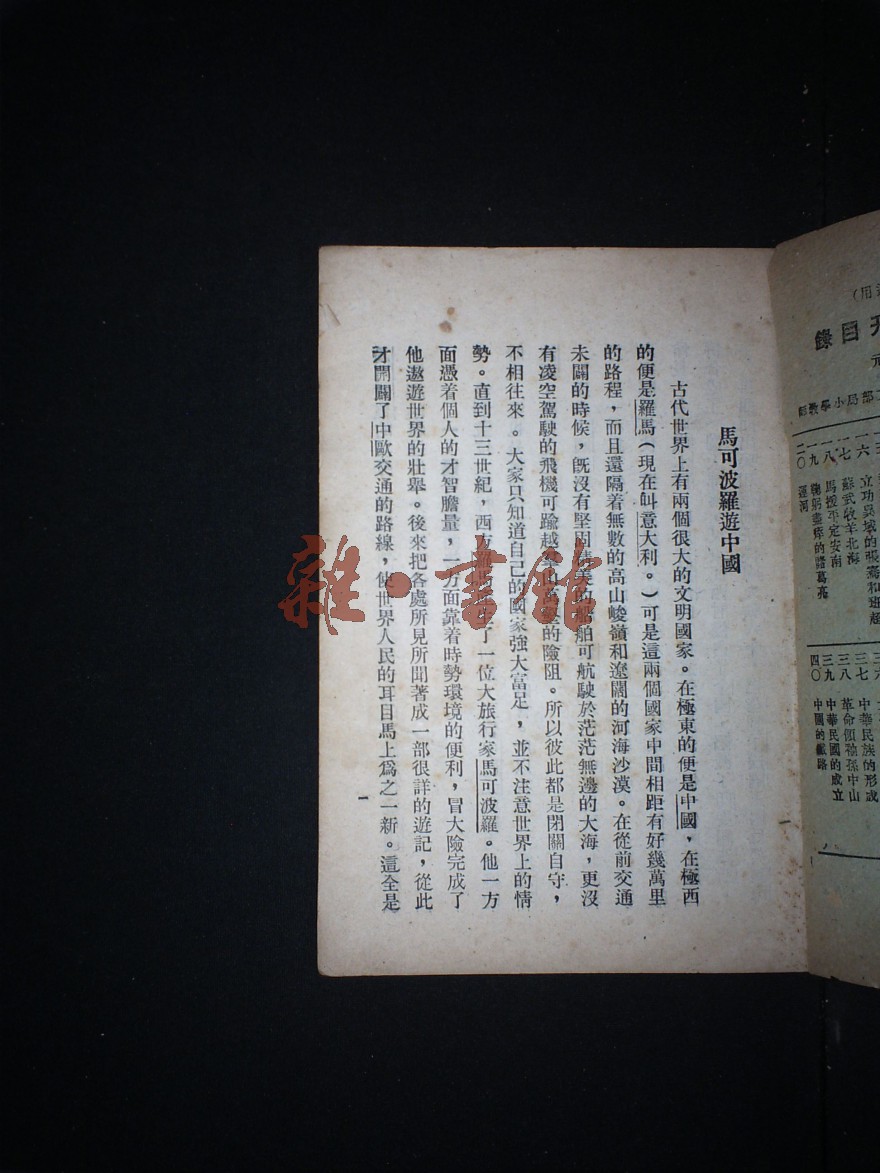 馬可波羅遊中國
古代世界上有兩個很大的文明國家。在極東的便是中國，在極西
的便是羅馬(現在叫意大利。)可是這兩個國家中間相距有好幾萬里
的路程，而且還隔着無數的高山峻嶺和遼闊的河海沙漠。在從前交通
未闢的時候，旣沒有堅固精美的船舶可航駛於茫茫無邊的大海，更沒
有凌空駕駛的飛機可踰越的險阻。所以彼此都是閉關自守，
不相往來。大家只知道自己的國家強大富足，並不注意世界上的情
勢。直到十三世紀，西方了一位大旅行家馬可波羅。他一方
面憑着個人的才智膽量，一方面靠着時勢環境的便利，冒大險完成了
他遨遊世界的壯舉。後來把各處所見所聞著成一部很詳的遊記，從此
才開闢了中歐交通的路線，使世界人民的耳目馬上爲之一新。這全是
一
雜·書館
目錄
部局小學教師
一六 立功異域的張騫和班超
一七 蘇武牧羊北海
一八 馬援平定安南
一九 鞠躬盡瘁的諸葛亮
二〇 運河
三七 中華民族的形成
三八 革命領袖孫中山
三九 中華民國的成立
四〇 中國的鐵路